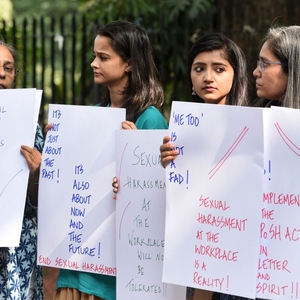 IT'S
NOT JUST
ABOUT
THE PAST!
IT'S
ALSO
ABOUT
NOW
AND
THE
FUTURE!
END SEXUAL HARASSMENT
SEXUAL
HARASSMENT
AT THE
WORKPLACE
WILL NO
BE
TOLERATED!
'ME TOO'
IS
NOT
A
FAD!
SEXUAL
HARASSMENT
AT THE
WORKPLACE
IS A
REALITY!
IMPLEMENT
THE
POSH ACT
IN
LETTER
AND
SPIRIT!